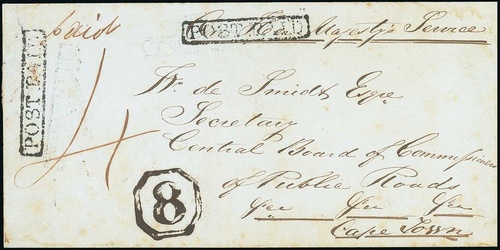 paid
POST PAID
On Her Majesty's Service
POST PAID
4
W. de Smidt Esqre
Secretary
Central Board of Commissioners
of Public Roads
8
Cape Town